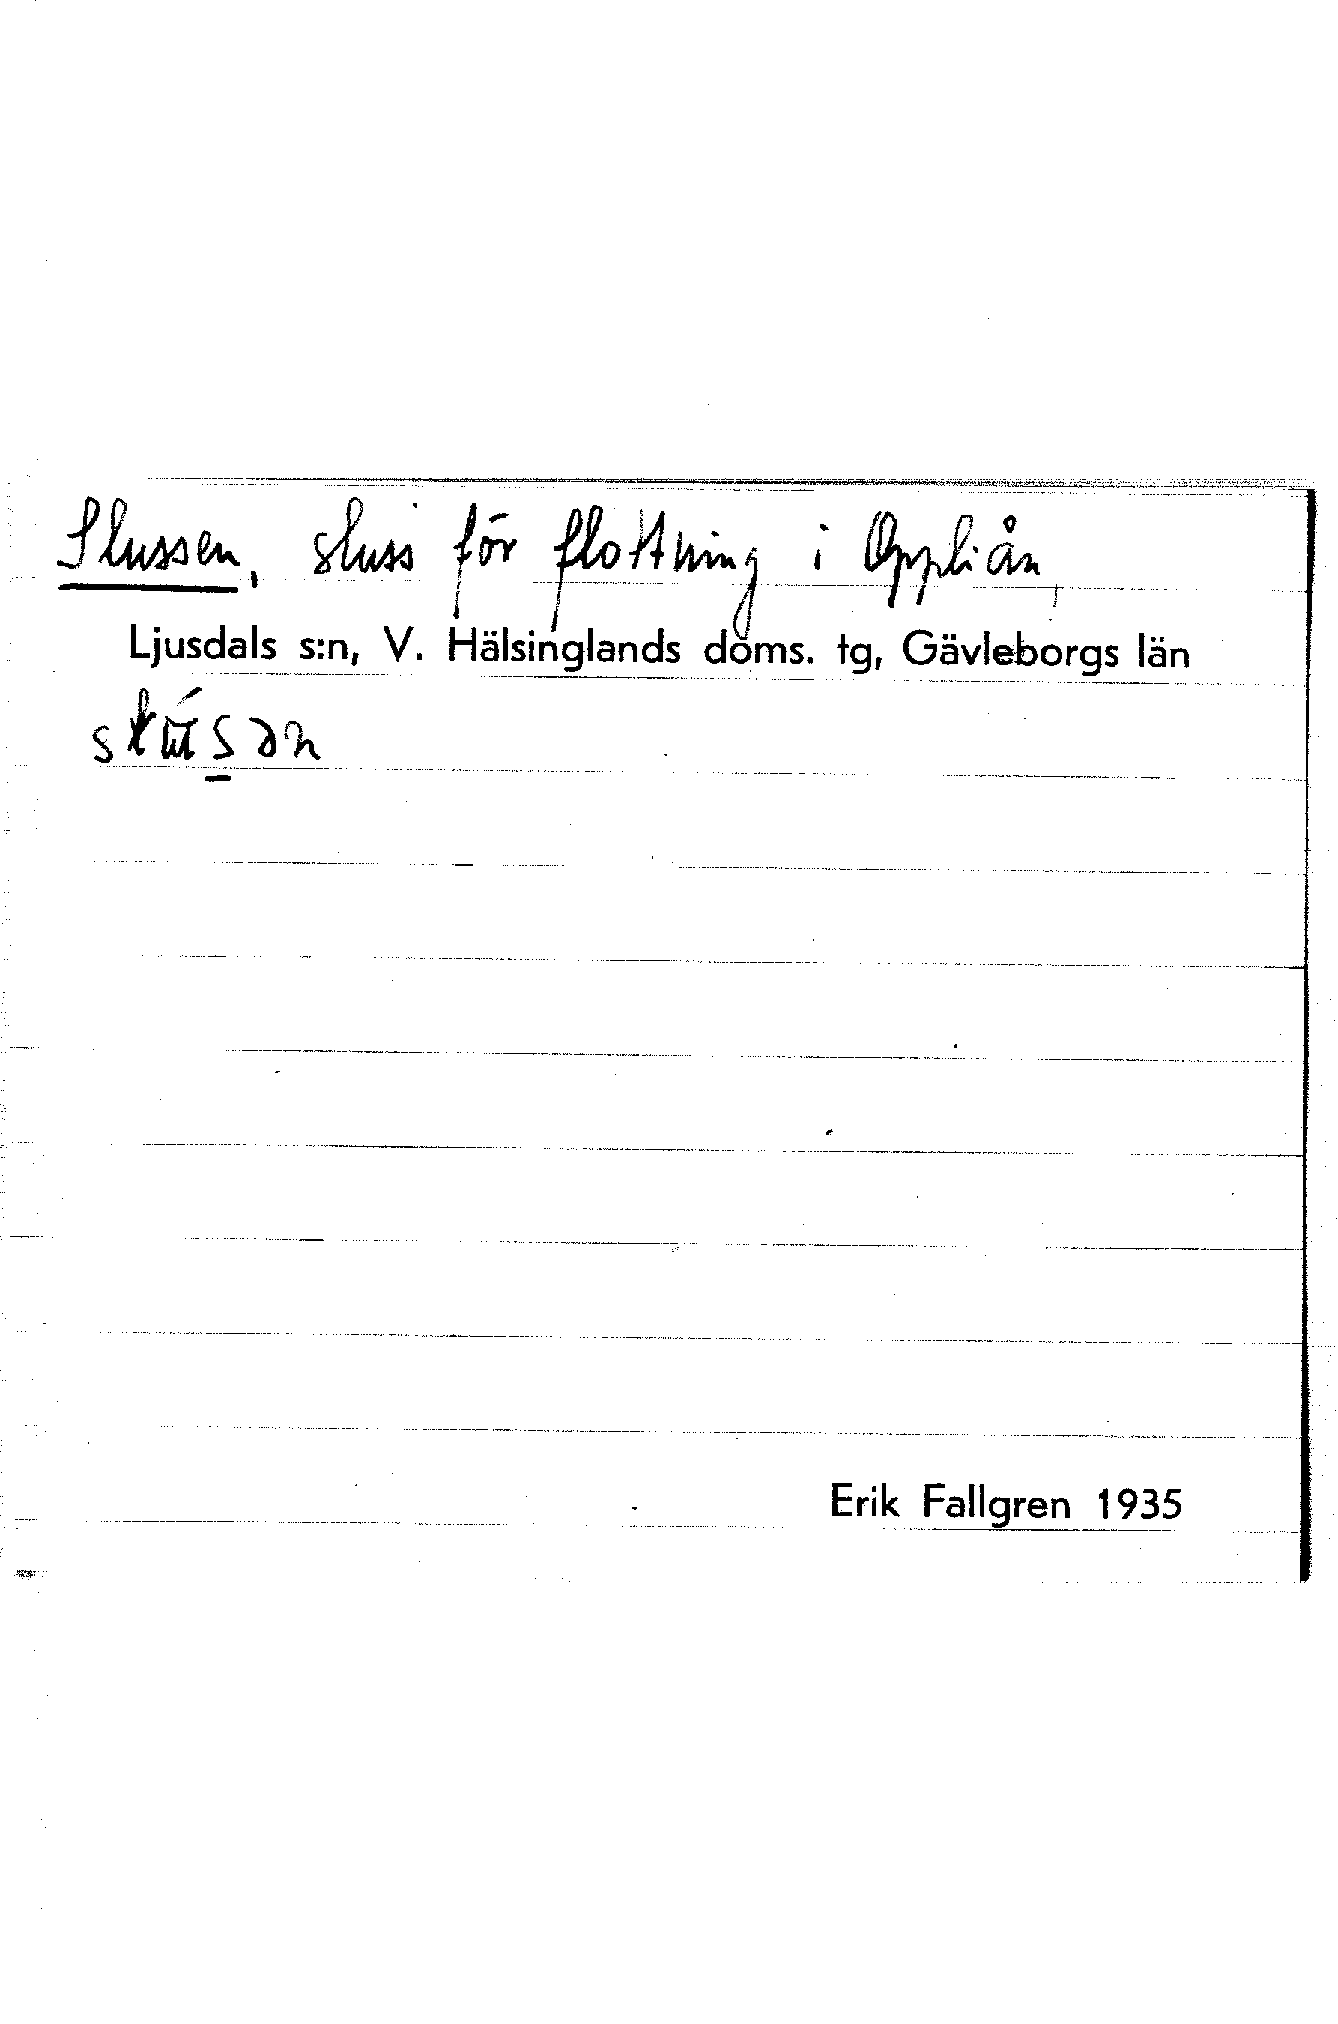 Slussen, sluss för flottning i Oppliån,
Ljusdals s:n, V. Hälsinglands doms. tg, Gävleborgs län
Erik Fallgren 1935